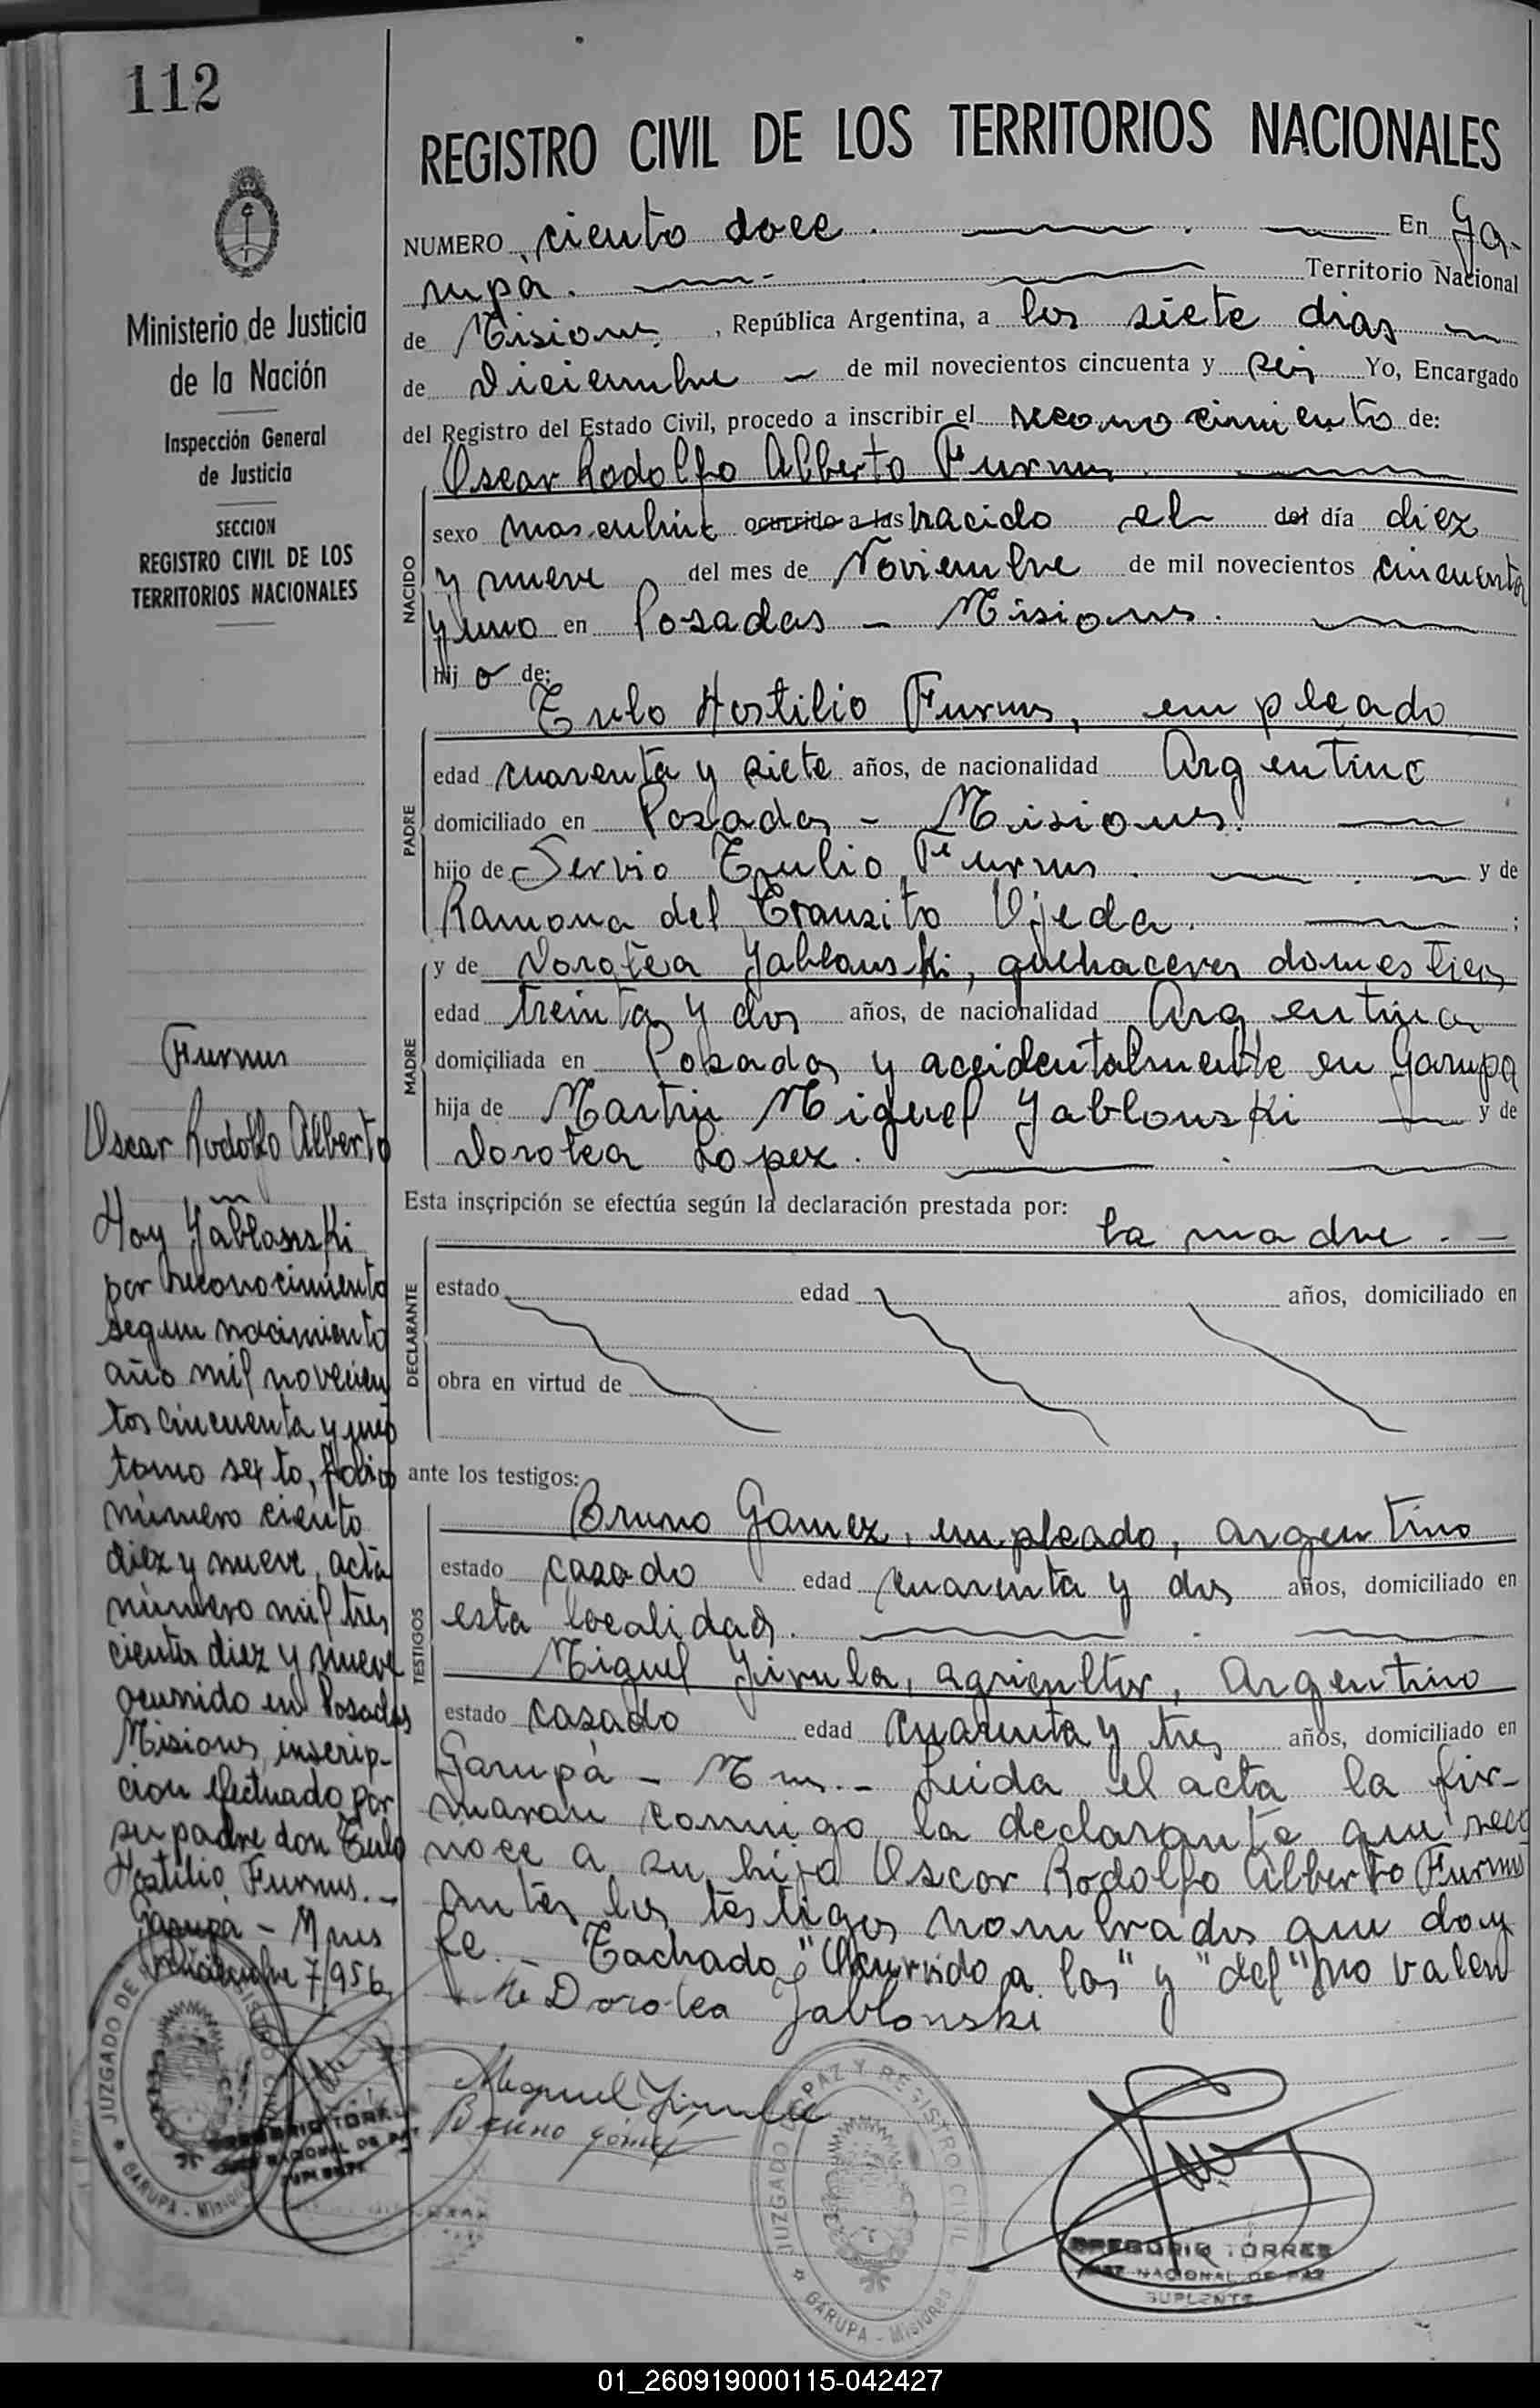 112
REGISTRO CIVIL DE LOS TERRITORIOS NACIONALES
Ministerio de Justicia
de la Nación
Inspección General
de Justicia
SECCION
REGISTRO CIVIL DE LOS
TERRITORIOS NACIONALES
Furnus
Oscar Rodolfo Alberto
Hoy Yablonski
por reconocimiento
segun nacimiento
año mil novecien
tos cincuenta y uno
tomo sexto, folio
número ciento
diez y nueve, acta
número mil tres
cientos diez y nueve
ocurrido en Posadas
Misiones, inscrip-
cion efectuado por
su padre don Tulo
Hostilio Furnus. -
Garupá - Mnes
Diciembre 7/956
NUMERO ciento doce. En Ga-
rupá. Territorio Nacional
de Misiones, República Argentina, a los siete dias
de Diciembre de mil novecientos cincuenta y seis Yo, Encargado
del Registro del Estado Civil, procedo a inscribir el reconocimiento de:
Oscar Rodolfo Alberto Furnus
NACIDO
sexo masculino ocurrido a las nacido el del día diez
y nueve del mes de Noviembre de mil novecientos cincuenta
y uno en Posadas - Misiones.
hijo de:
PADRE
Tulo Hostilio Furnus, empleado
edad cuarenta y siete años, de nacionalidad Argentino
domiciliado en Posadas - Misiones.
hijo de Servio Tulio Furnus. y de
Ramona del Transito Ojeda. ;
MADRE
y de Dorotea Yablonski, quehaceres domesticos
edad treinta y dos años, de nacionalidad Argentina
domiciliada en Posadas y accidentalmente en Garupa
hija de Martin Miguel Yablonski y de
Dorotea Lopez.
Esta inscripción se efectúa según la declaración prestada por:
la madre. -
DECLARANTE
estado edad años, domiciliado en
obra en virtud de
ante los testigos:
TESTIGOS
Bruno Gamez, empleado, argentino
estado casado edad cuarenta y dos años, domiciliado en
esta localidad.
Miguel Yirula, agricultor, Argentino
estado casado edad cuarenta y tres años, domiciliado en
Garupá - Mnes. - Leida el acta la fir-
maron conmigo la declarante que reco
noce a su hijo Oscar Rodolfo Alberto Furnus
antes los testigos nombrados que doy
fe. - Tachado "Ocurrido a las" y "del" no valen
Dorotea Jablonski
Miguel Yirula
Bruno Gómez
JUZGADO DE PAZ Y REGISTRO CIVIL
GARUPA - Misiones
GREGORIO TORRES
JUEZ NACIONAL DE PAZ
SUPLENTE
JUZGADO DE PAZ Y REGISTRO CIVIL
GARUPA - Misiones
GREGORIO TORRES
JUEZ NACIONAL DE PAZ
SUPLENTE
01_260919000115-042427